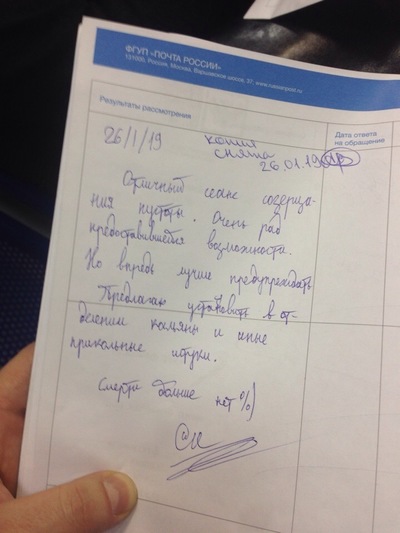 ФГУП «ПОЧТА РОССИИ»
131000, Россия, Москва, Варшавское шоссе, 37, www.russianpost.ru
Результаты рассмотрения
Дата ответа
на обращение
26/1/19
копия
снята
26.01.19
Отличный сеанс созерца-
ния пустоты. Очень рад
предоставившейся возможности.
Но впредь лучше предупреждать
Предлагаю установить в от-
делении кальяны и иные
прикольные штуки.
Смерти больше нет %)